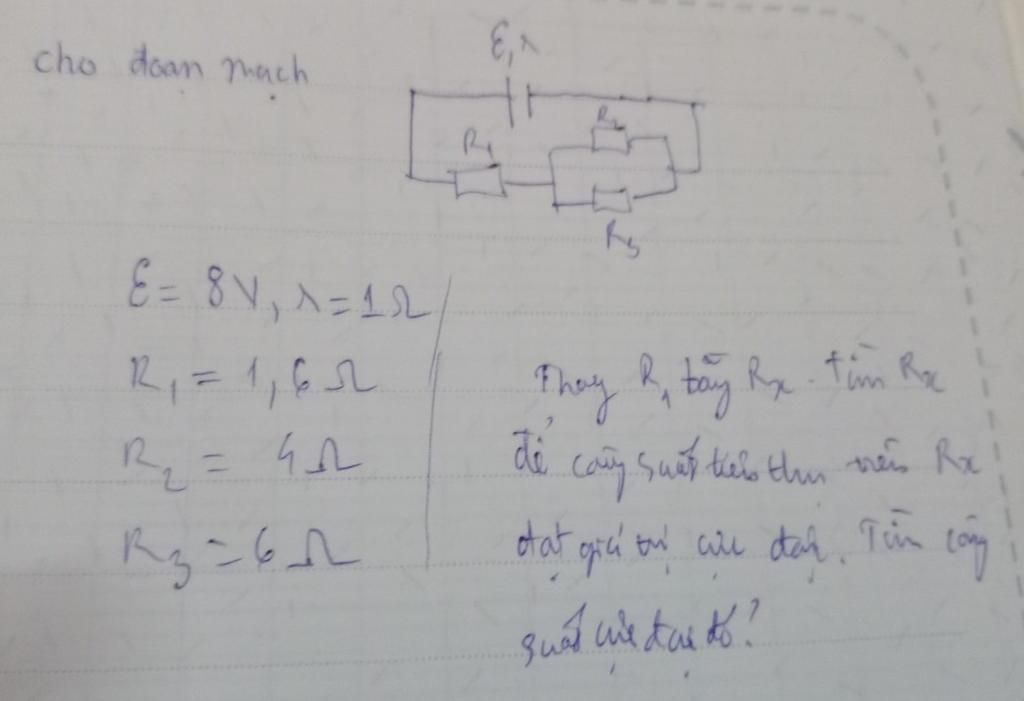 cho đoạn mạch
Ɛ, r
R₁
R₂
R₃
Ɛ = 8V, r = 1Ω
R₁ = 1,6 Ω
R₂ = 4Ω
R₃ = 6 Ω
Thay R₁ bằng Rx. Tìm Rx
để công suất tiêu thụ trên Rx
đạt giá trị cực đại. Tìm công
suất cực đại đó?